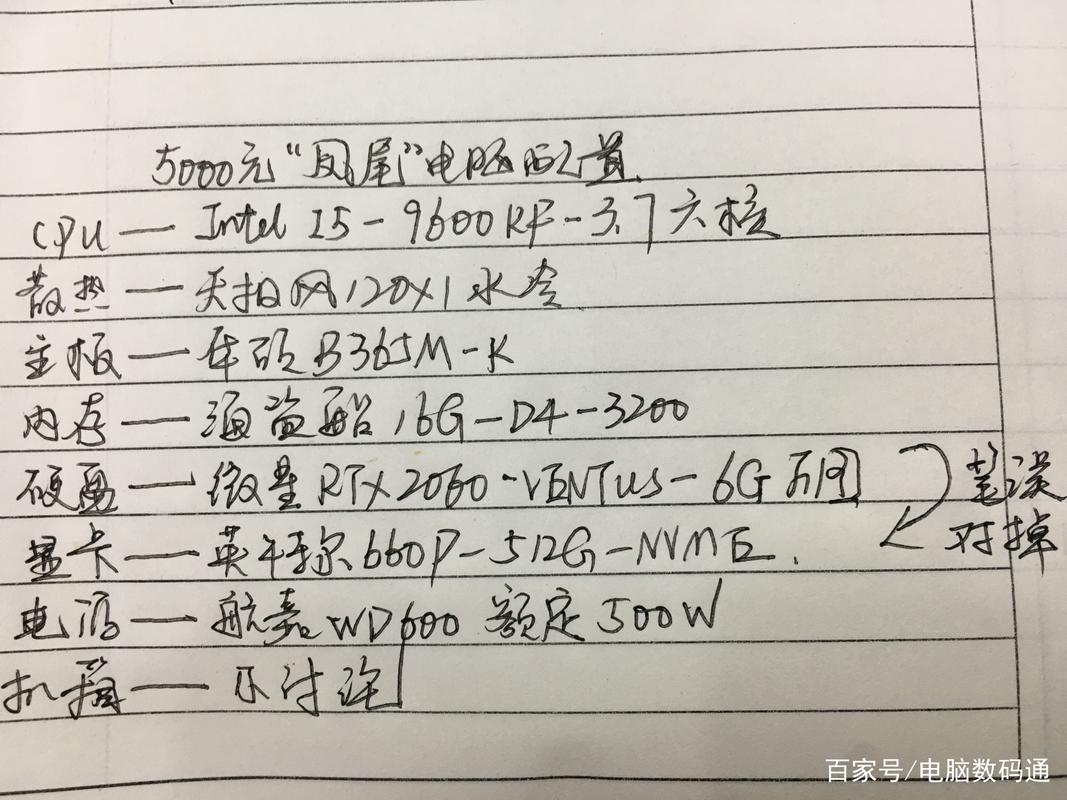 5000元“凤尾”电脑配置
CPU — Intel I5-9600KF-3.7六核
散热 — 天极风120X1水冷
主板 — 华硕B365M-K
内存 — 海盗船16G-D4-3200
硬盘 — 微星RTX2060-VENTUS-6G万图
显卡 — 英特尔660P-512G-NVME.
笔误
对掉
电源 — 航嘉WD600 额定500W
机箱 — 不讨论
百家号/电脑数码通